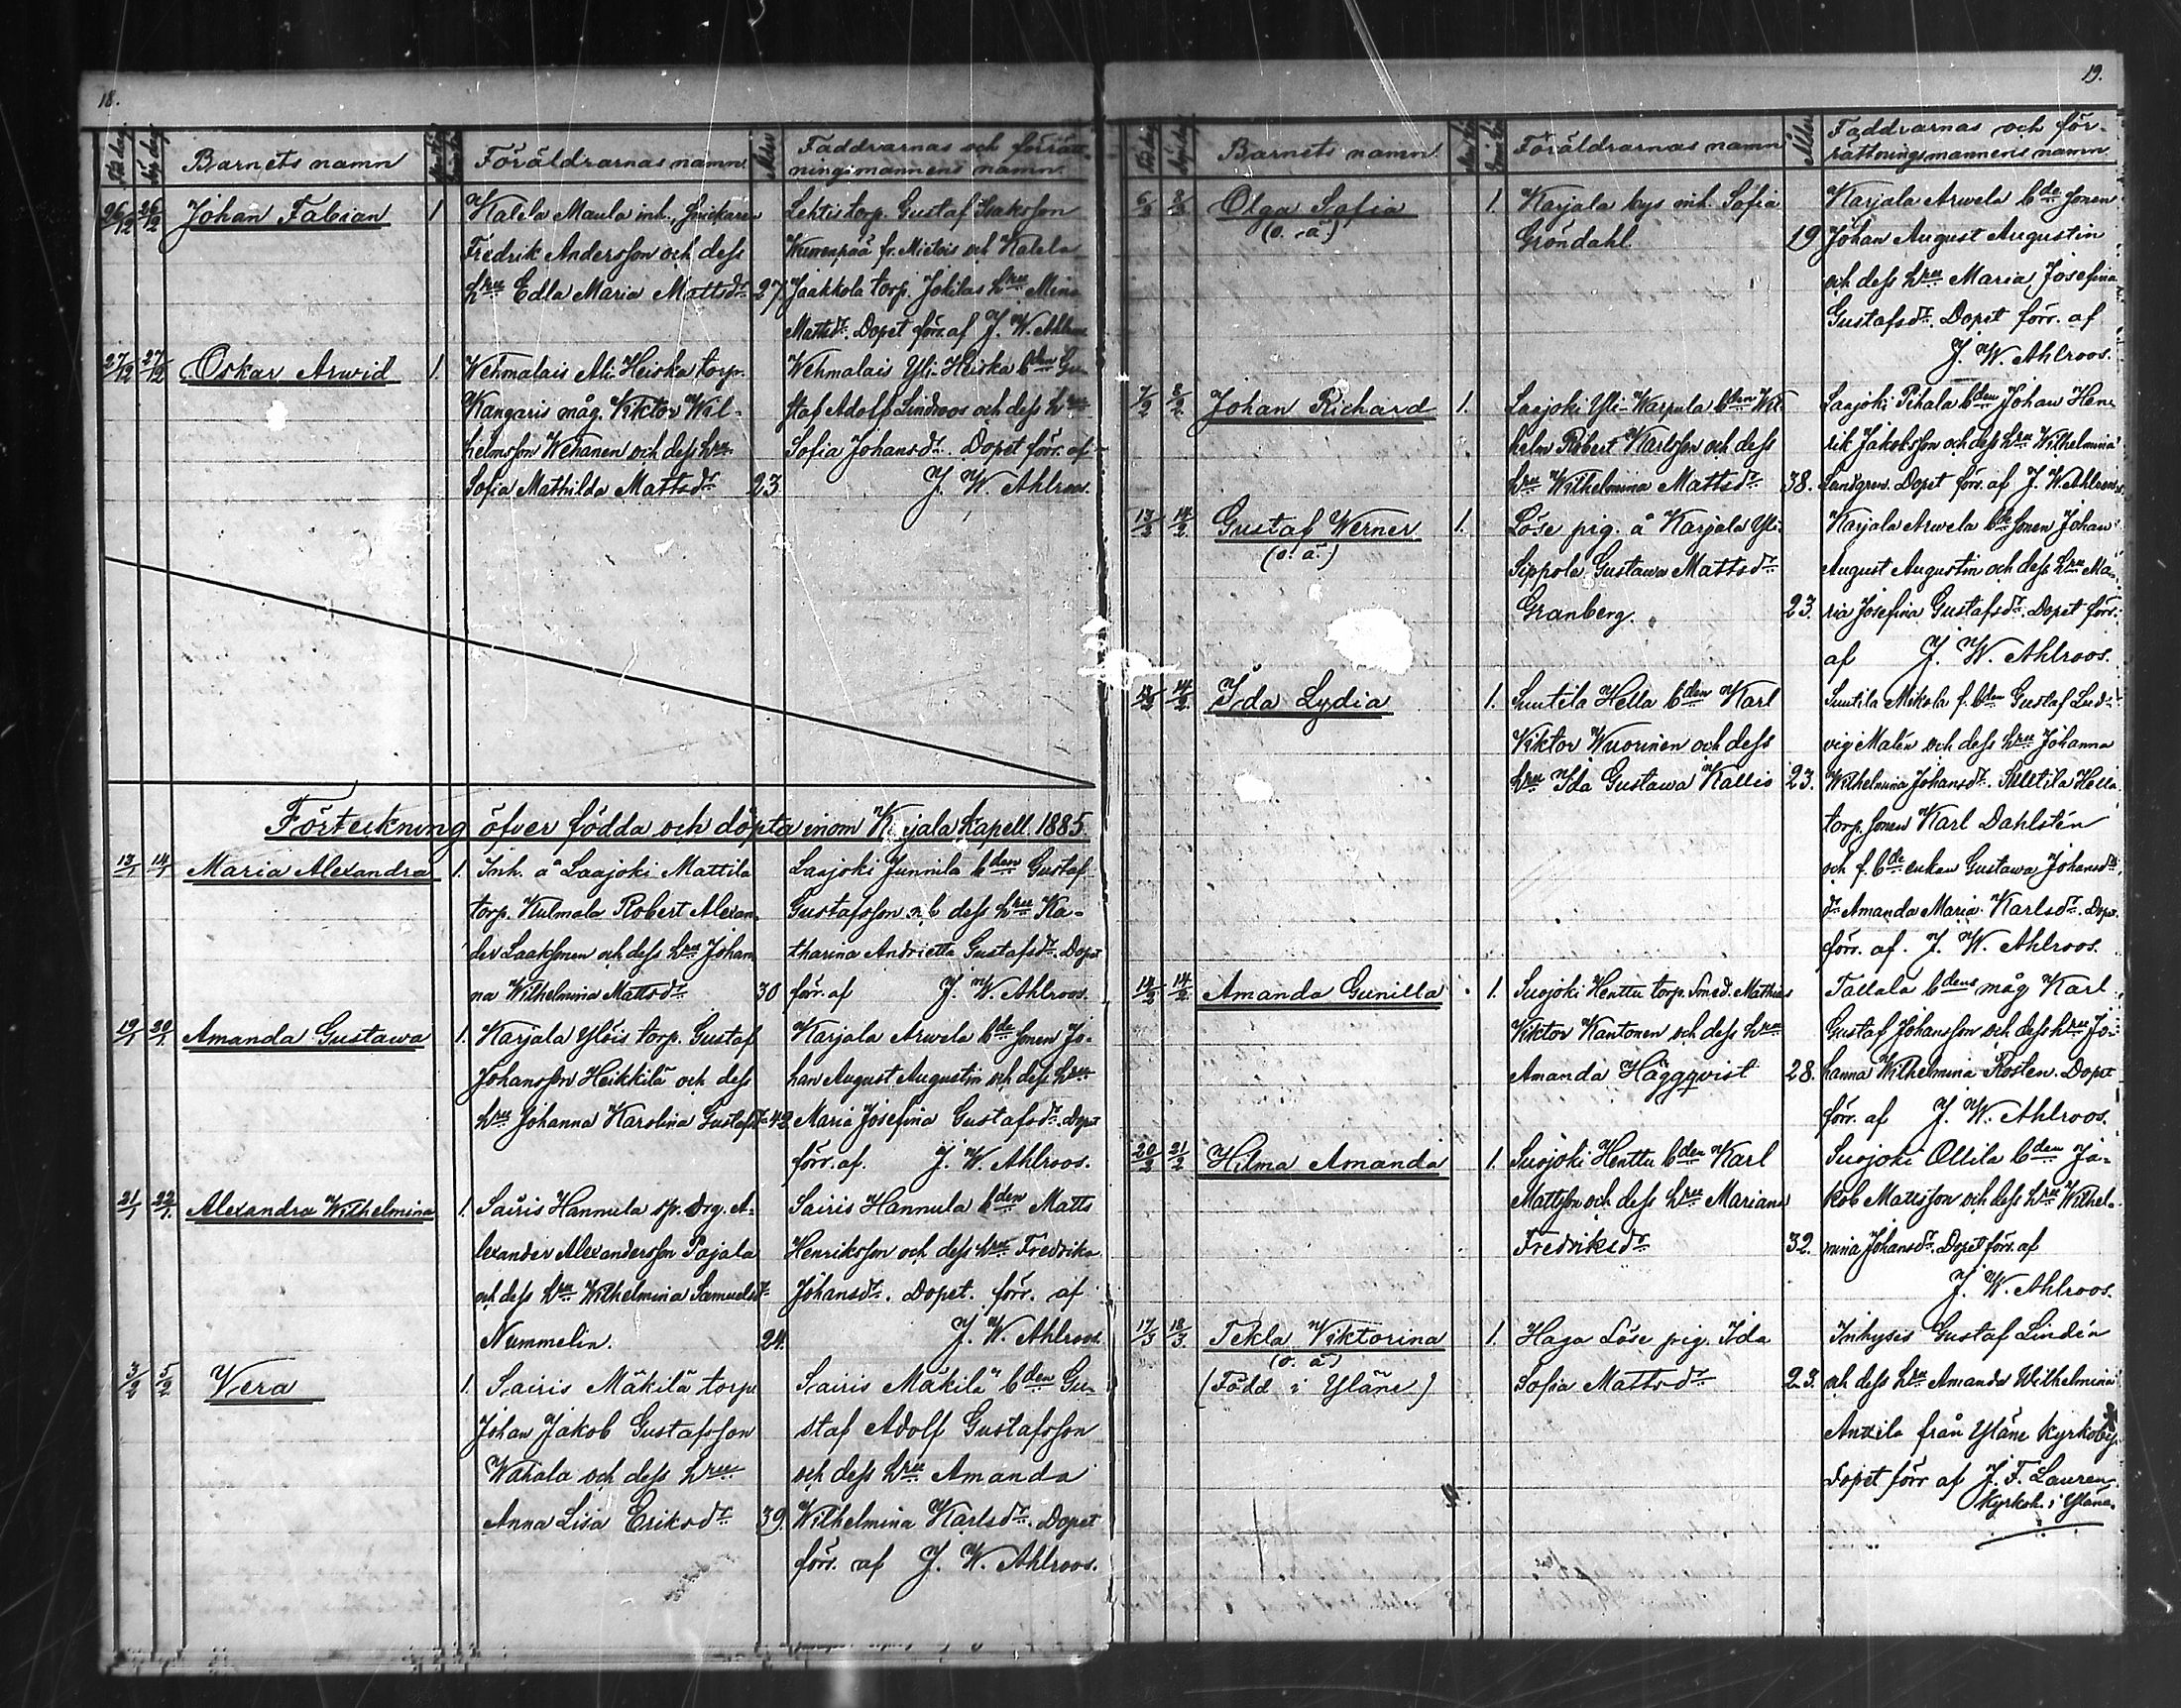 18.
Barnets namn Föräldrarnas namn Ålder Faddrarnas och förrätt-
ningsmannens namn.
26/12 26/12 Johan Fabian 1 Kalela Maula inh. snickaren
Fredrik Andersson och dess
hru Edla Maria Mattsdr 27
Lehtis torp. Gustaf Isaksson
fr. Mietois och Kalela
Jaakkola torp. Jokilas hru Mina
Mattsdr. Dopet förr. af J. W. Ahlroos
27/12 27/12 Oskar Arwid 1. Wehmalais Ali-Heiska torp.
Kangaris måg. Viktor Wil-
helmsson Wehanen och dess hru
Sofia Mathilda Mattsdr 23
Wehmalais Yli-Heiska bden Gu-
staf Adolf Lindroos och dess hru
Sofia Johansdr. Dopet förr. af
J. W. Ahlroos.
Förteckning öfver födda och döpta inom Karjala Kapell 1885.
13/1 14/1 Maria Alexandra 1. Inh. å Laajoki Mattila
torp. Kulmala Robert Alexan-
der Laaksonen och dess hru Johan
na Wilhelmina Mattsdr 30
Laajoki Junnila bden Gustaf
Gustafsson och dess hru Ka-
tharina Andrietta Gustafsdr. Dopet
förr. af J. W. Ahlroos.
19/1 30/1 Amanda Gustawa 1. Karjala Ylöis torp. Gustaf
Johansson Heikkilä och dess
hru Johanna Karolina Gustafsdr 42
Karjala Arwela bde sonen Jo-
han August Augustin och dess hru
Maria Josefina Gustafsdr. Dopet
förr. af. J. W. Ahlroos.
21/1 22/1. Alexandra Wilhelmina 1. Sairis Hannula sp. drg. A-
lexander Alexandersson Pajala
och dess hru Wilhelmina Samuelsdr
Nummelin. 24.
Sairis Hannula bden Matts
Henriksson och dess hru Fredrika
Johansdr. Dopet. förr. af
J. W. Ahlroos.
3/2 5/2 Vera 1. Sairis Mäkilä torp.
Johan Jakob Gustafsson
Wahala och dess hru
Anna Lisa Eriksdr 39.
Sairis Mäkilä bden Gu-
staf Adolf Gustafsson
och dess hru Amanda
Wilhelmina Karlsdr. Dopet
förr. af J. W. Ahlroos.
19.
Barnets namn Föräldrarnas namn Ålder Faddrarnas och för-
rättningsmannens namn.
Olga Sofia 1. Karjala bys inh. Sofia
(o. ä.) Gröndahl. 19
Karjala Arwela bde sonen
Johan August Augustin
och dess hru Maria Josefina
Gustafsdr. Dopet förr. af
J. W. Ahlroos.
7/2 8/2 Johan Richard 1. Laajoki Yli-Warpula bden Wil-
helm Robert Karlsson och dess
hru Wilhelmina Mattsdr 38.
Laajoki Pihala bden Johan Hen-
rik Jakobsson och dess hru Wilhelmina
Lundgren. Dopet förr. af J. W. Ahlroos.
14/2 Gustaf Werner 1. Löse pig. å Karjala Yli-
(o. ä.) Sippola Gustawa Mattsdr
Granberg. 23.
Karjala Arwela bde sonen Johan
August Augustin och dess hru Ma-
ria Josefina Gustafsdr. Dopet förr.
af J. W. Ahlroos.
14/2 Ida Lydia 1. Suutila Hella bden Karl
Viktor Wuorinen och dess
hru Ida Gustawa Kallis 23.
Suutila Mikola f. bden Gustaf Lud-
vig Malén och dess hru Johanna
Wilhelmina Johansdr. Suutila Hella
torp. sonen Karl Dahlstén
och f. bde enkan Gustawa Johansdr
dr Amanda Maria Karlsdr. Dopet
förr. af. J. W. Ahlroos.
14/2 Amanda Gunilla 1. Suojoki Henttu torp. smed. Mathias
Viktor Kantonen och dess hru
Amanda Häggqvist 28.
Tallala bdens måg Karl
Gustaf Johansson och dess hru Jo-
hanna Wilhelmina Rosten. Dopet
förr. af J. W. Ahlroos.
20/2 21/2 Hilma Amanda 1. Suojoki Henttu bden Karl
Mattsson och dess hru Mariana
Fredriksdr 32.
Suojoki Ollila bden Ja-
kob Mattsson och dess hru Wilhel-
mina Johansdr. Dopet förr. af
J. W. Ahlroos.
17/3 18/3 Tekla Viktorina 1. Haga Löse pig. Ida
(o. ä.)
(Född i Yläne) Sofia Mattsdr 23.
Inhysis Gustaf Lindén
och dess hru Amanda Wilhelmina
Anttila från Yläne Kyrkoby.
Dopet förr af J. F. Lauren
Kyrkoh. i Yläne.